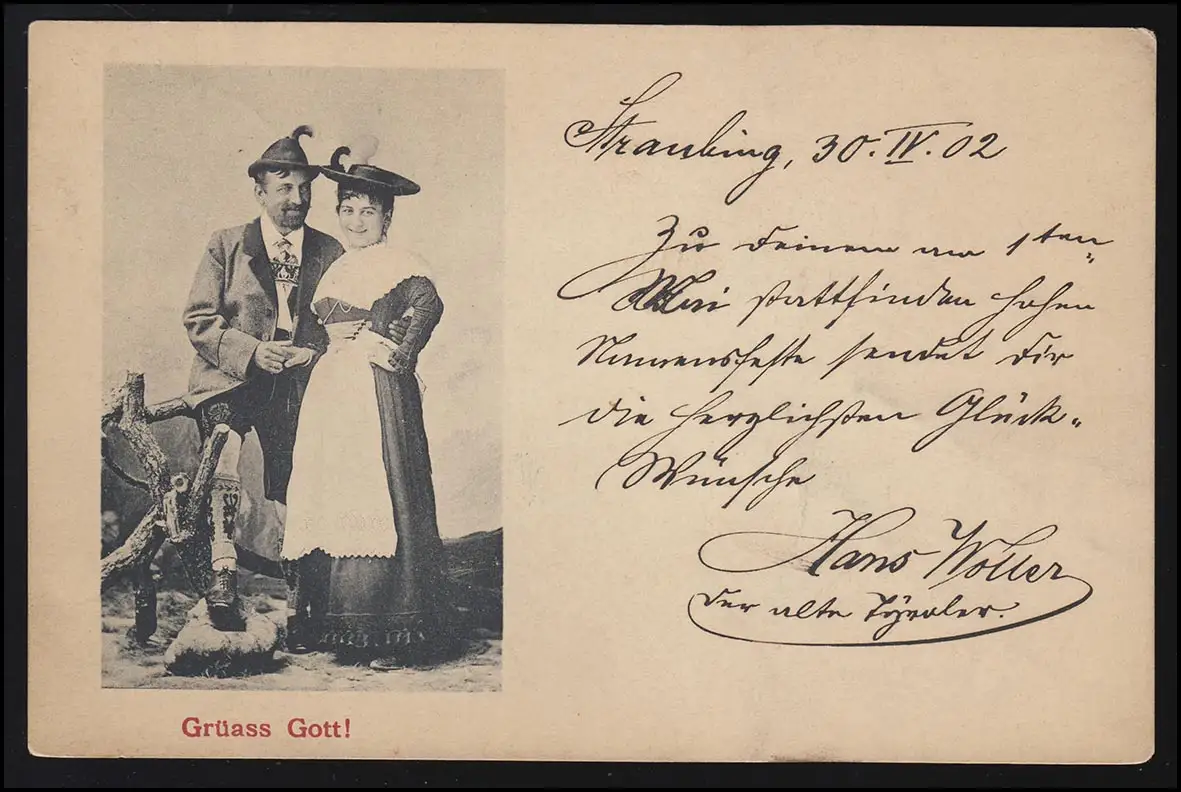 Straubing, 30. IV. 02
Zu Deinem am 1ten
Mai stattfinden hohen
Namensfeste sendet Dir
die herzlichsten Glück-
Wünsche
Hans Woller
der alte Tyroler.
Grüass Gott!